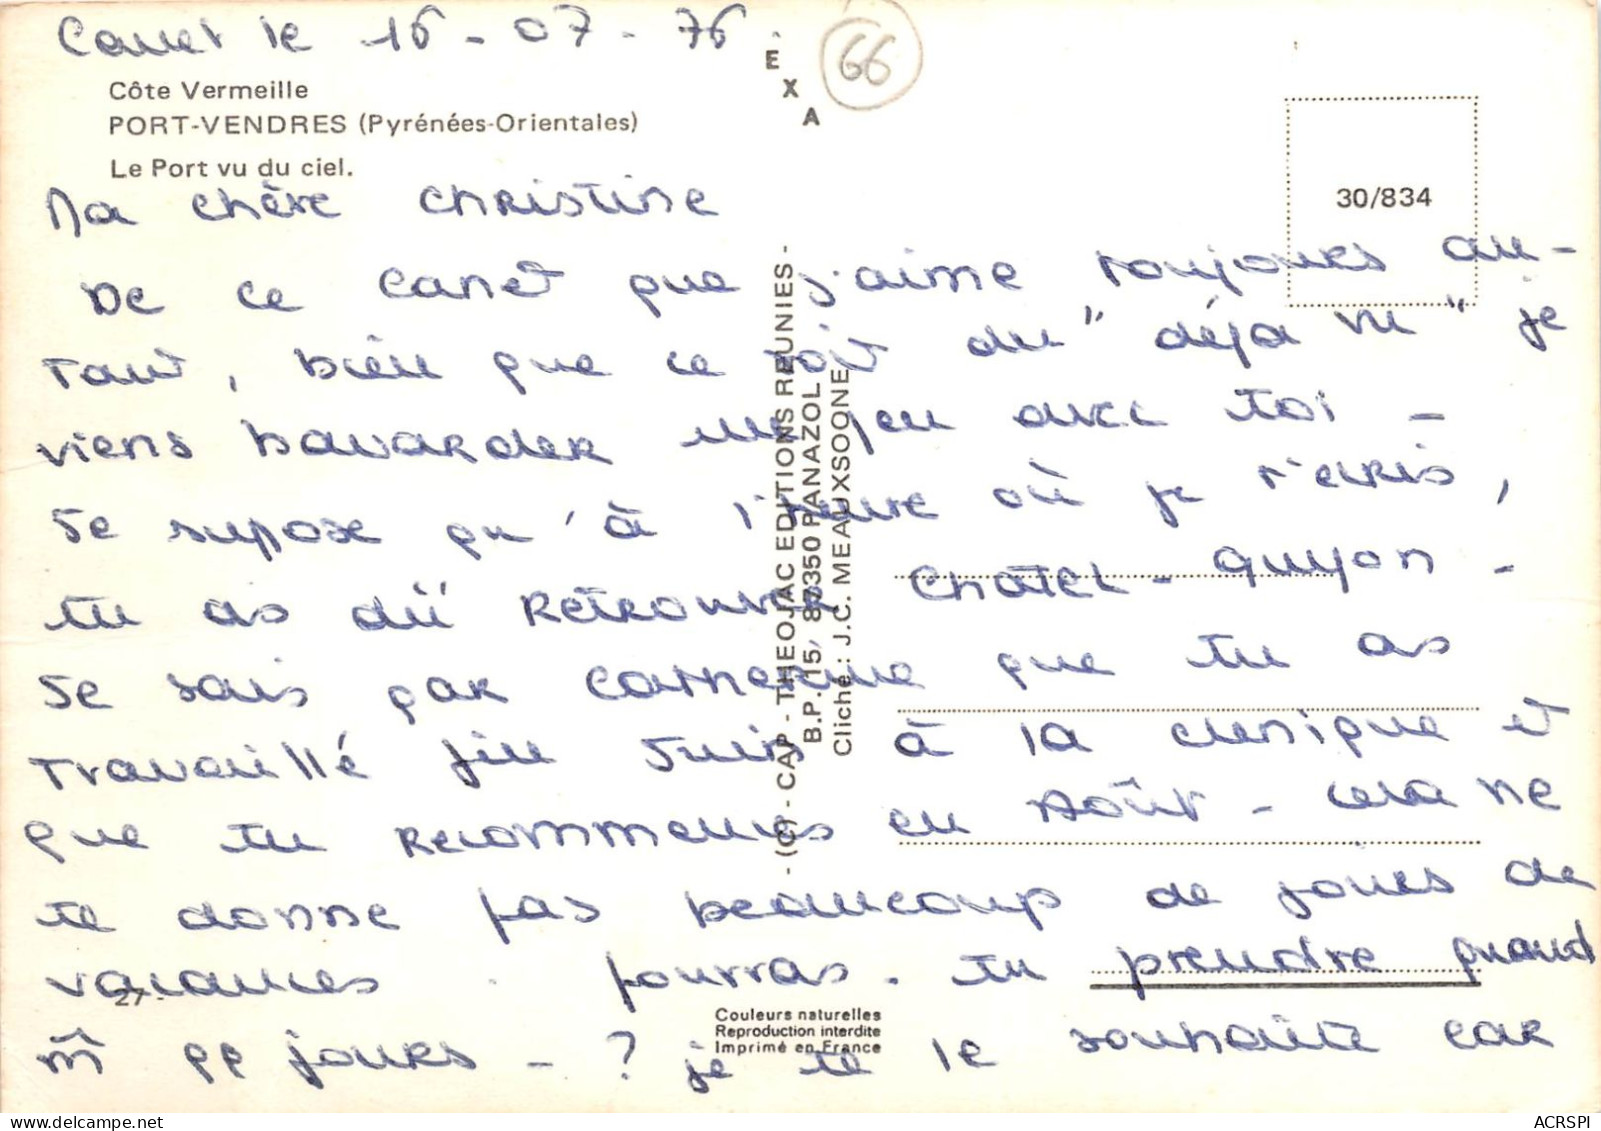 Canet le 16-07-76.
66
E
X
A
Côte Vermeille
PORT-VENDRES (Pyrénées-Orientales)
Le Port vu du ciel.
30/834
Ma chère christine
De ce canet que j'aime toujours au-
tant, bien que ce soit du "déjà vu" je
viens bavarder un peu avec toi -
Je suppose qu'à l'heure où je t'écris,
tu as dû retrouver Chatel-Guyon -
Je sais par Catherine que tu as
travaillé fin Juin à la clinique et
que tu recommences en Août - cela ne
te donne pas beaucoup de jours de
vacances. pourras-tu prendre quand
m̂ qq jours - ? je te le souhaite car
- (C) - CAP - THEOJAC EDITIONS REUNIES -
B.P. 15, 87350 PANAZOL
Cliché : J.C. MEAUXSOONE
27.
Couleurs naturelles
Reproduction interdite
Imprimé en France
ACRSPI